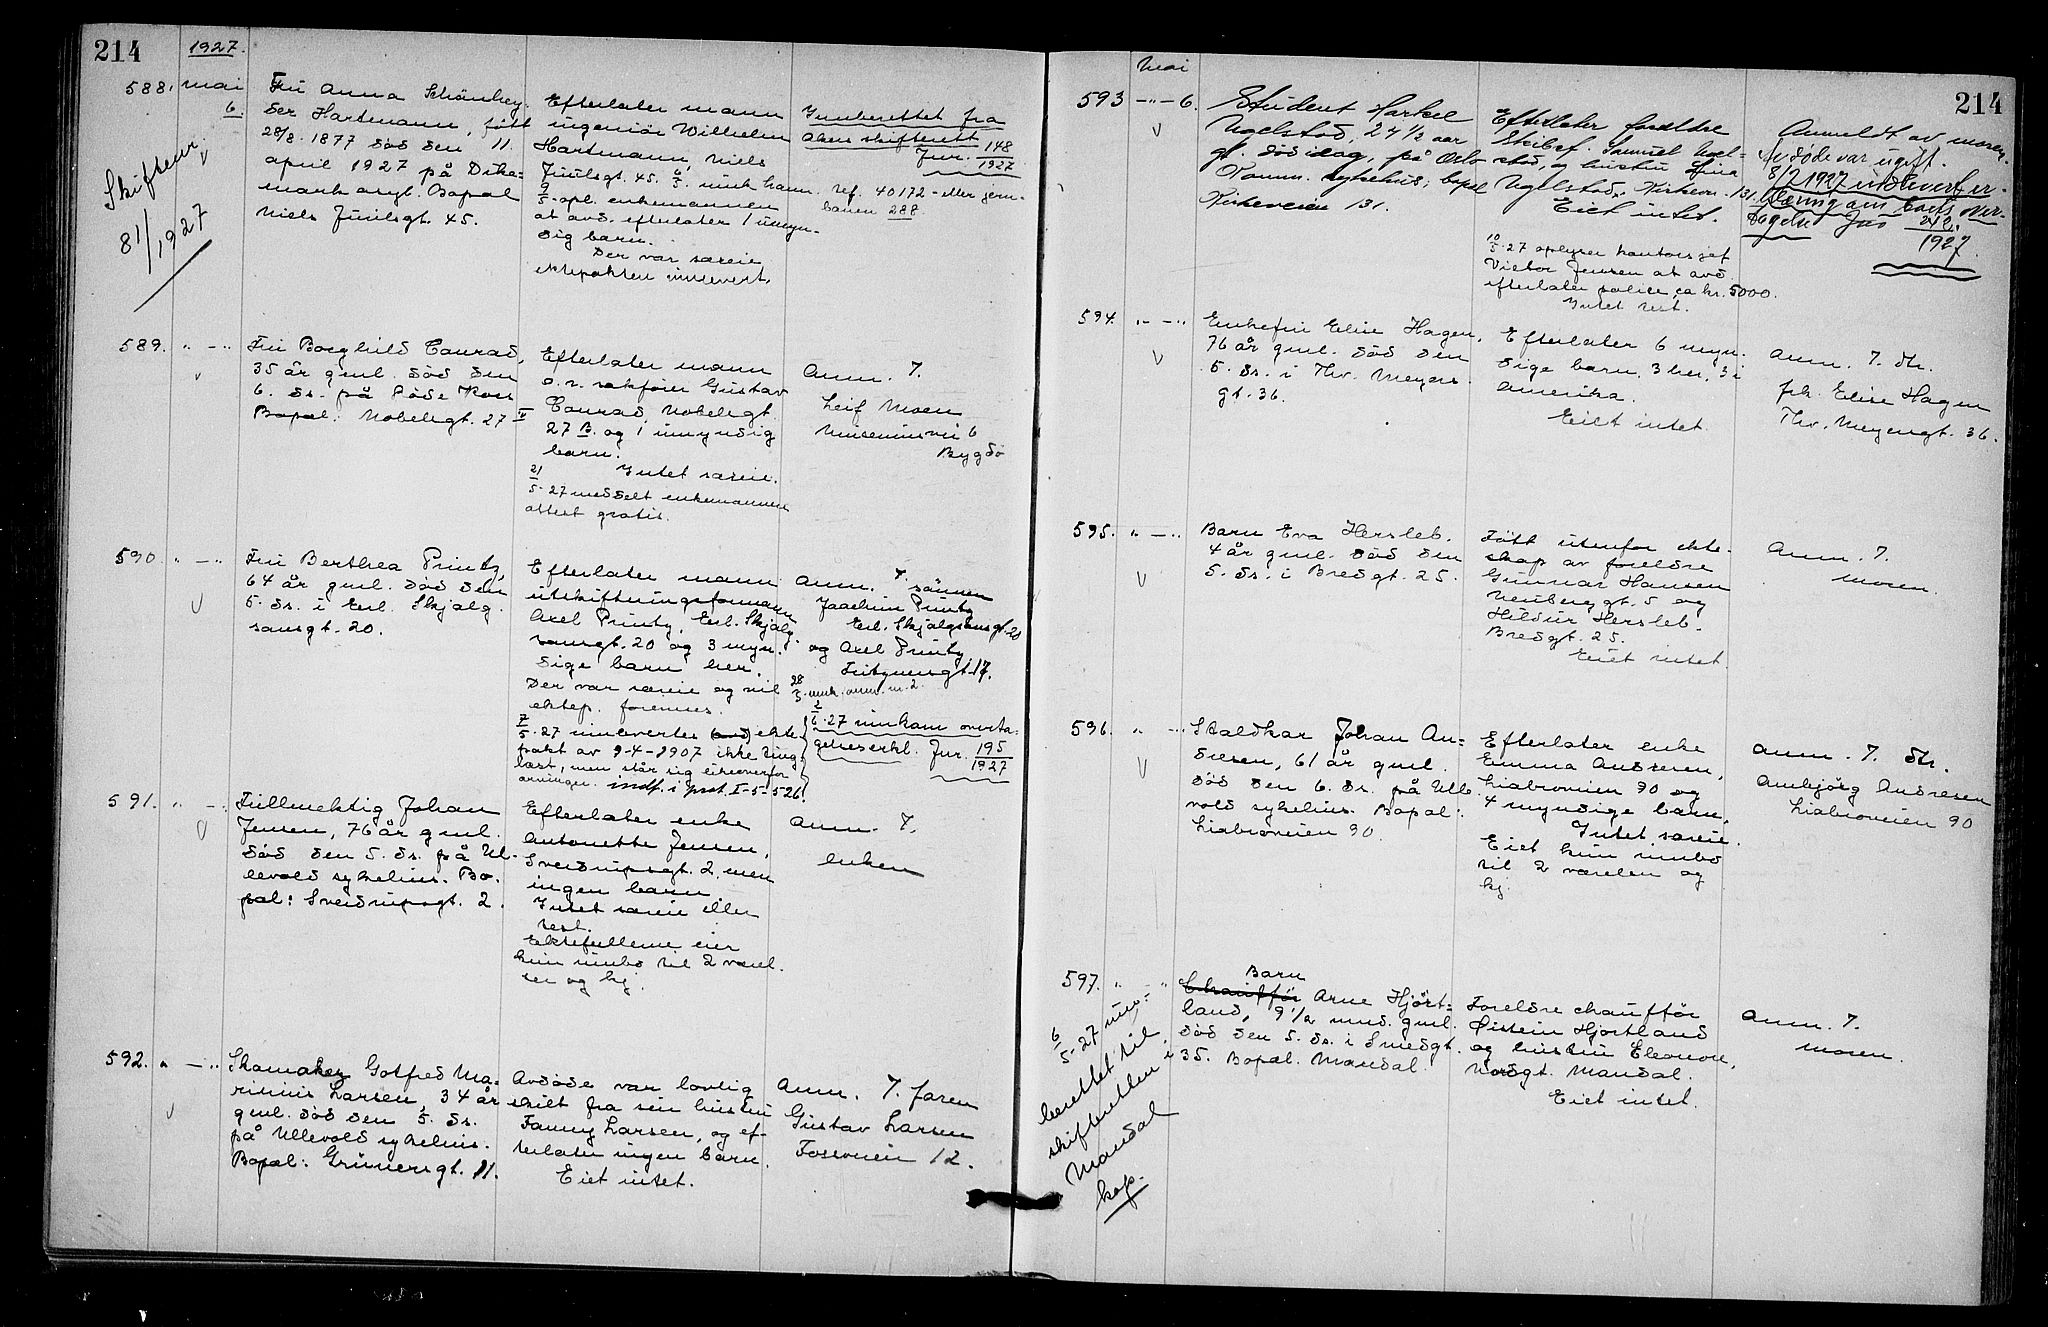 214
1927.
588. mai
6.
Skiftear.
81/1927
Fru Anna Schönhey-
der Hartmann, født
28/8. 1877 död den 11.
april 1927 på Dike-
mark asyl. Bopæl
Niels Juulsgt. 45.
Efterlater mann
ingeniör Wilhelm
Hartmann, Niels
Juulsgt. 45.
9/5. opl. enkemannen
at avd. efterlater 1 umyn-
dig barn.
Der var særeie
ektepakten innlevert.
Innberettet fra
Akers skifterett
Jnr. 148/1927
ref. 40172 - eller jern-
banen 288.
589. " - "
Fru Borghild Conrad,
35 år gml. död den
6. ds. på Röde Kors
Bopæl: Nobelsgt. 27 II
Efterlater mann
o.r. sakförer Gustav
Conrad, Nobelsgt.
27 B. og 1 umyndig
barn.
Intet særeie.
21/5-27 meddelt enkemannen
attest gratis.
Anm. 7.
Leif Moen
Museumsvei 6
Bygdö
590. " - "
Fru Berthea Printz,
64 år gml. död den
5. ds. i Erl. Skjalg-
sonsgt. 20.
Efterlater mann
utskiftningsformann
Axel Printz, Erl. Skjalg-
sonsgt. 20 og 3 myn-
dige barn her.
Der var særeie og vil
ektep. forevises.
7/5-27 innleverter ekte-
pakt av 9-4-1907 ikke ting-
læst, men står sig
indf. i prot. I-5-526.
Anm. 7. sönnen
Joachim Printz
Erl. Skjalgsonsgt. 20
og Axel Printz
17.
28/5. innk. anm. nr. 2.
2/6-27 innkom overta-
gelseserkl. Jnr. 195/1927
591. " - "
Fullmektig Johan
Jensen, 76 år gml.
död den 5. ds. på Ul-
levold sykehus. Bo-
pæl: Sverdrupsgt. 2.
Efterlater enke
Antonette Jensen,
Sverdrupsgt. 2, men
ingen barn
Intet særeie eller
test.
Ektefellerne eier
kun innbo til 2 værel-
ser og kj.
Anm. 7.
enken
592. " - "
Skomaker Gotfred Ma-
rinius Larsen, 34 år
gml. död den 5. ds.
på Ullevold sykehus.
Bopæl: Grünersgt. 11.
Avdöde var lovlig
skilt fra sin hustru
Fanny Larsen, og ef-
terlater ingen barn.
Eiet intet.
Anm. 7. faren
Gustav Larsen
Fossveien 12.
214
Mai
593 - " - 6.
Student Harkel
Ugelstad, 24 1/2 aar
gl. död idag, på Oslo
Komm. sykehus, bopæl
Kirkeveien 131.
Efterlater foreldre
Skibsf. Samuel Ugel-
stad, og hustru Lina
Ugelstad, Kirkevn. 131.
Eiet intet.
10/5-27 oplyser kontorsjef
Victor Jensen at avd.
efterlater police, ca kr. 5000.
Intet test.
Anmeldt av moren.
Avdöde var ugift.
8/7 1927 utlevert er-
klæring om boets over-
tagelse Jnr 242/1927.
594. " - "
Enkefru Elise Hagen,
76 år gml. död den
5. ds. i Thv. Meyers-
gt. 36.
Efterlater 6 myn-
dige barn, 3 her, 3 i
Amerika.
Eiet intet.
Anm. 7. dtr.
frk. Elise Hagen
Thv. Meyersgt. 36.
595. " - "
Barn Eva Hersleb.
4 år gml. död den
5. ds. i Bredgt. 25.
Född utenfor ekte-
skap av foreldre
Gunnar Hansen
Neuberggt. 5 og
Hildur Hersleb.
Bredgt. 25.
Eiet intet.
Anm. 7.
moren.
596. " - "
Staldkar Johan An-
dresen, 61 år gml.
död den 6. ds. på Ulle-
vold sykehus. Bopæl:
Liabroveien 90.
Efterlater enke
Emma Andresen,
Liabroveien 90 og
4 myndige barn.
Intet særeie.
Eiet kun innbo
til 2 værelser og
kj.
Anm. 7. dtr.
Annbjörg Andresen
Liabroveien 90
597. " - "
6/5-27 inn-
berettet til
skifteretten i
Mandal
kop.
Barn
Chaufför Arne Hjört-
land, 9 1/2 mnd. gml.
död den 5. ds. i Smedgt.
35. Bopæl. Mandal.
Foreldre chaufför
Øistein Hjortland
og hustru Eleonore,
Nordgt. Mandal.
Eiet intet.
Anm. 7.
moren.